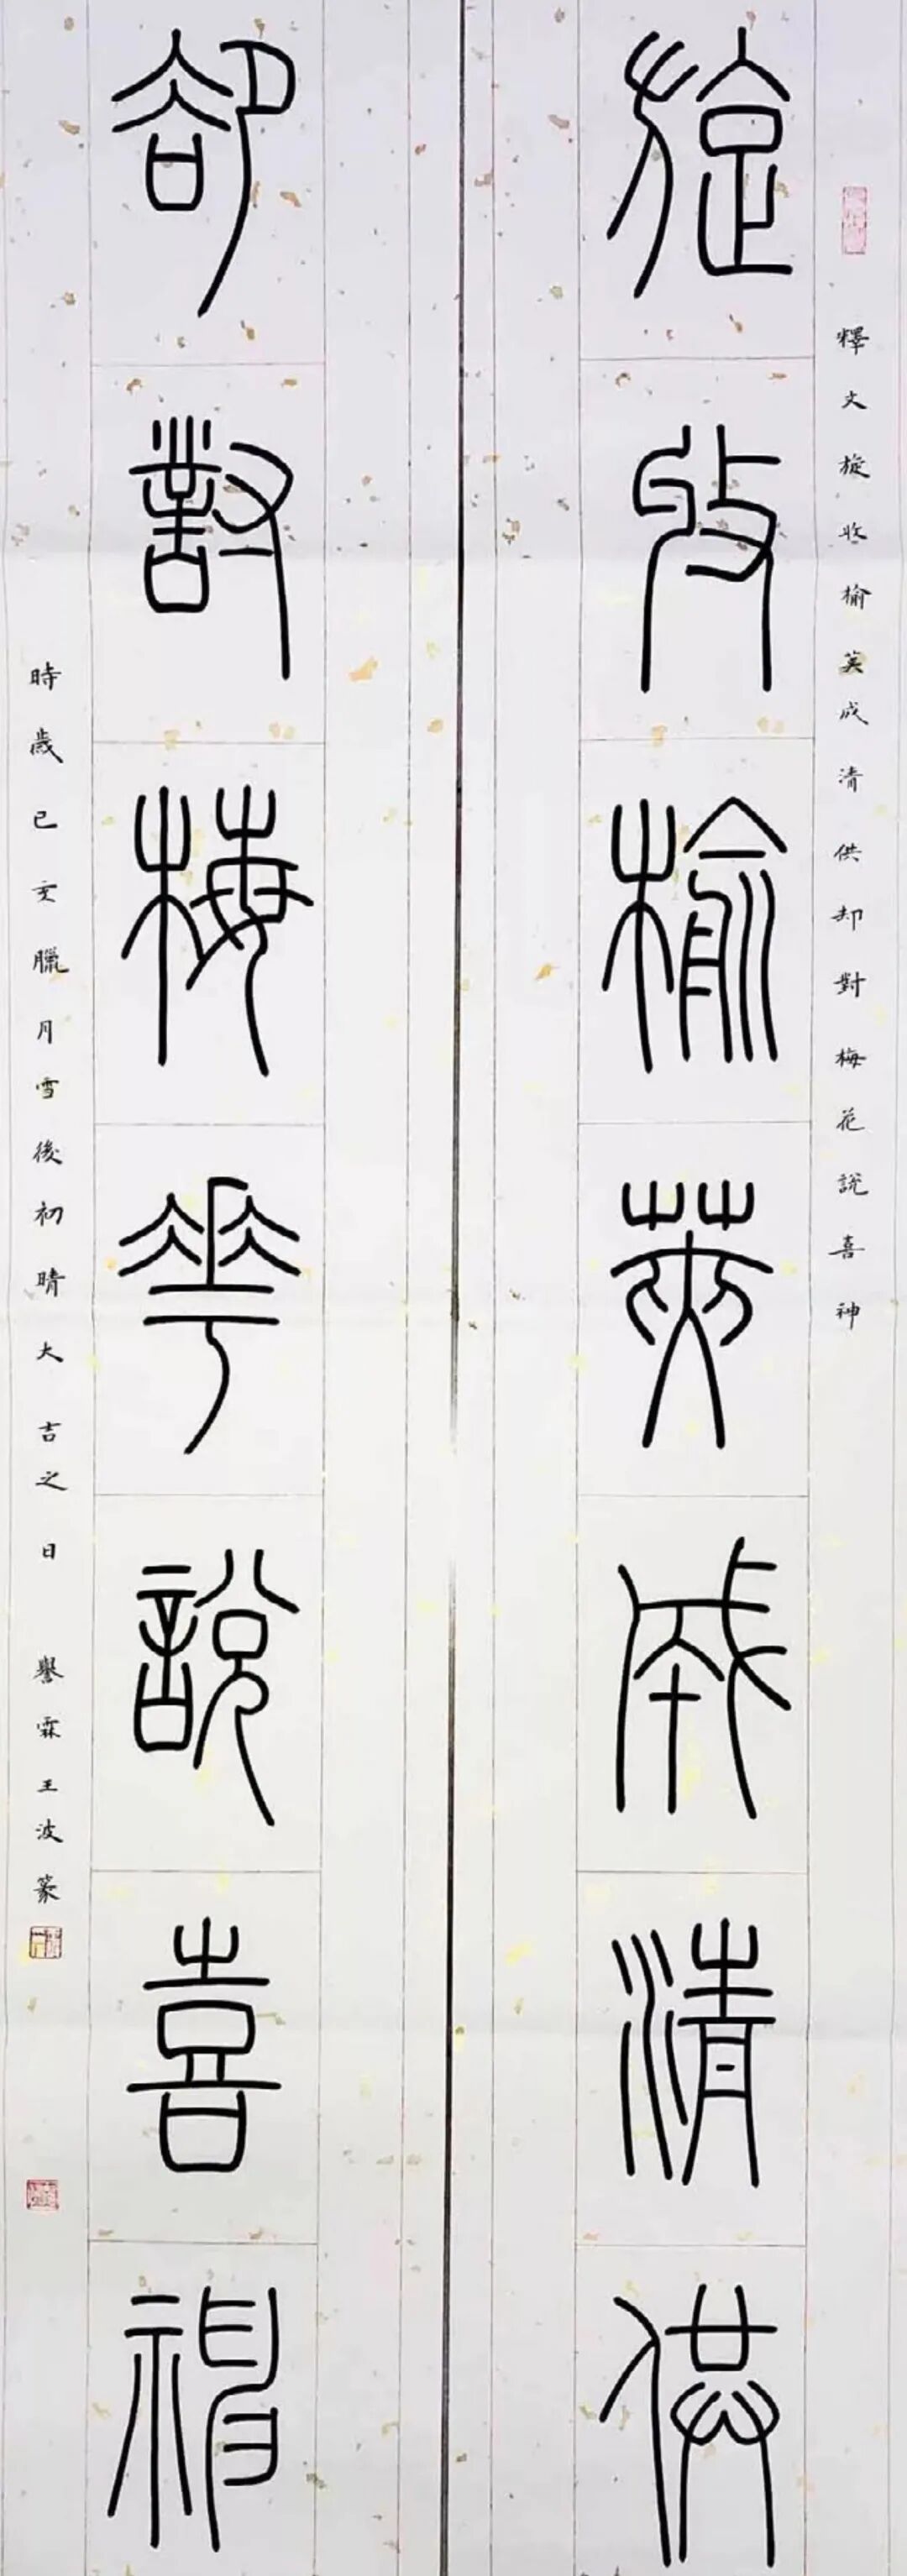 釋文旋收榆莢成清供却對梅花說喜神
旋收榆莢成清供
卻對梅華說喜神
時歲己亥臘月雪後初晴大吉之日 譽霖王波篆